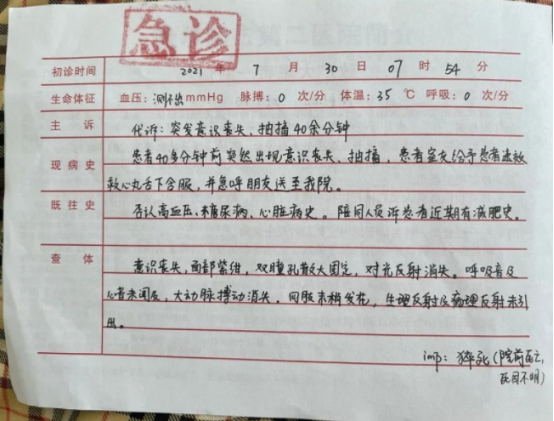 急诊
初诊时间 2021 年 7 月 30 日 07 时 54 分
生命体征 血压：测不出mmHg 脉搏：0 次/分 体温：35 ℃ 呼吸：0 次/分
主诉 代诉：突发意识丧失、抽搐40余分钟
现病史 患者40多分钟前突然出现意识丧失、抽搐，患者室友给予患者速效
救心丸舌下含服，并急呼朋友送至我院。
既往史 否认高血压、糖尿病、心脏病史。陪同人员诉患者近期有减肥史。
查体 意识丧失，面部紫绀，双瞳孔散大固定，对光反射消失。呼吸音及
心音未闻及，大动脉搏动消失，四肢末梢发花，生理反射及病理反射未引
出。
imp：猝死（院前死亡，
死因不明）